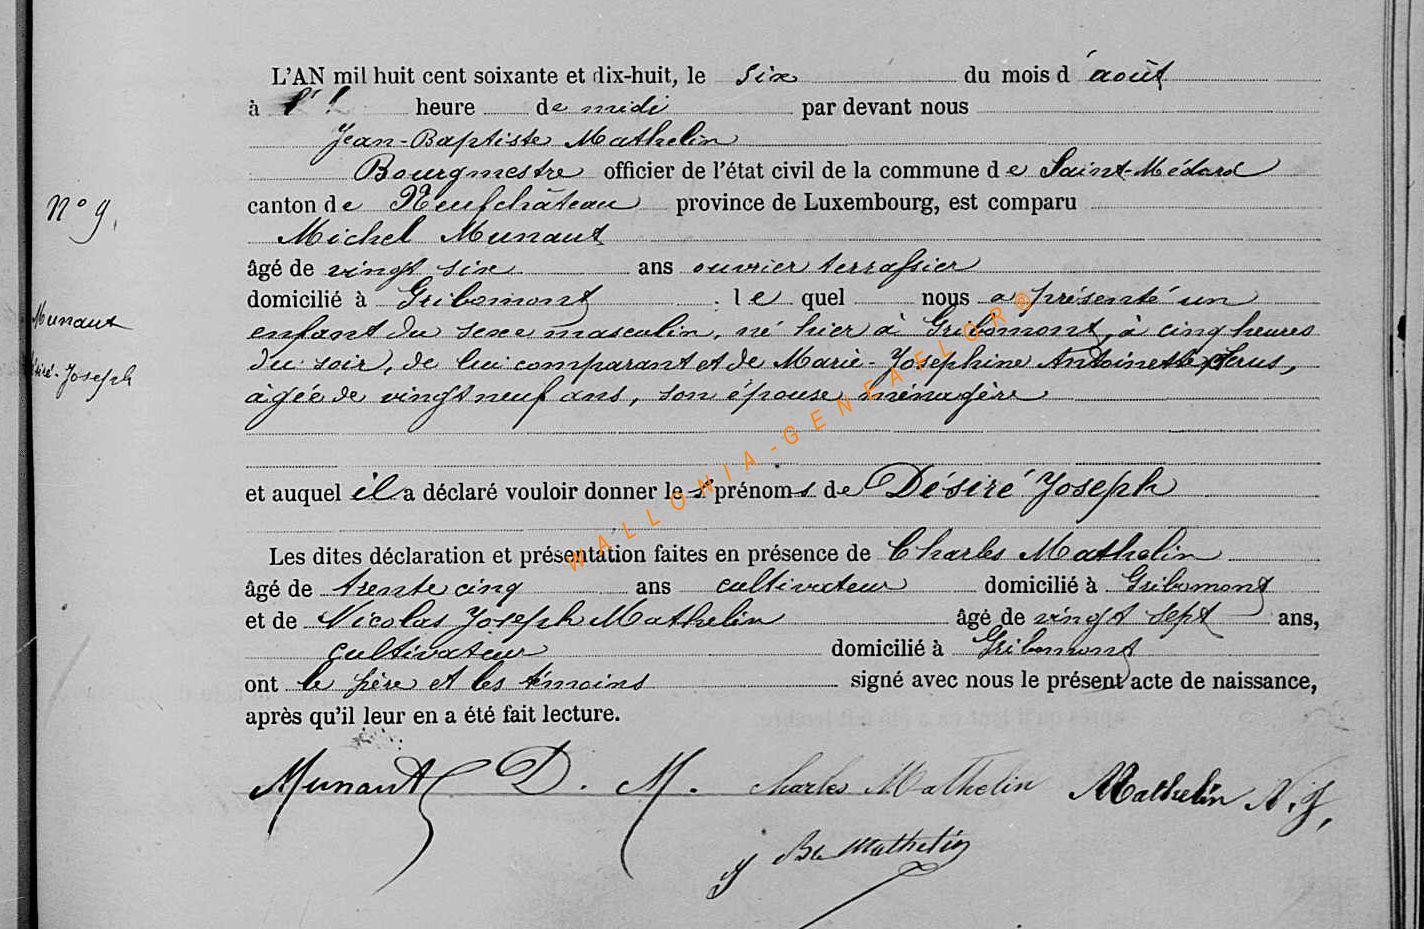 L'AN mil huit cent soixante et dix-huit, le six du mois d'août
à heure de midi par devant nous
Jean-Baptiste Mathelin
Bourgmestre officier de l'état civil de la commune de Saint-Médard
N° 9.
canton de Neufchâteau province de Luxembourg, est comparu
Michel Munaut
âgé de vingt six ans ouvrier terrassier
domicilié à Gribomont le quel nous a présenté un
Munaut
enfant du sexe masculin, né hier à Gribomont, à cinq heures
du soir, de lui comparant et de Marie-Josephine Antoinette
Joseph
âgée de vingt neuf ans, son épouse ménagère
WALLONIA-GENEAFLOR®
et auquel il a déclaré vouloir donner les prénoms de Désiré Joseph
Les dites déclaration et présentation faites en présence de Charles Mathelin
âgé de trente cinq ans cultivateur domicilié à Gribomont
et de Nicolas Joseph Mathelin âgé de vingt sept ans,
cultivateur domicilié à Gribomont
ont le père et les témoins signé avec nous le présent acte de naissance,
après qu'il leur en a été fait lecture.
Munaut D. M. Charles Mathelin Mathelin N. J.
J Bte Mathelin